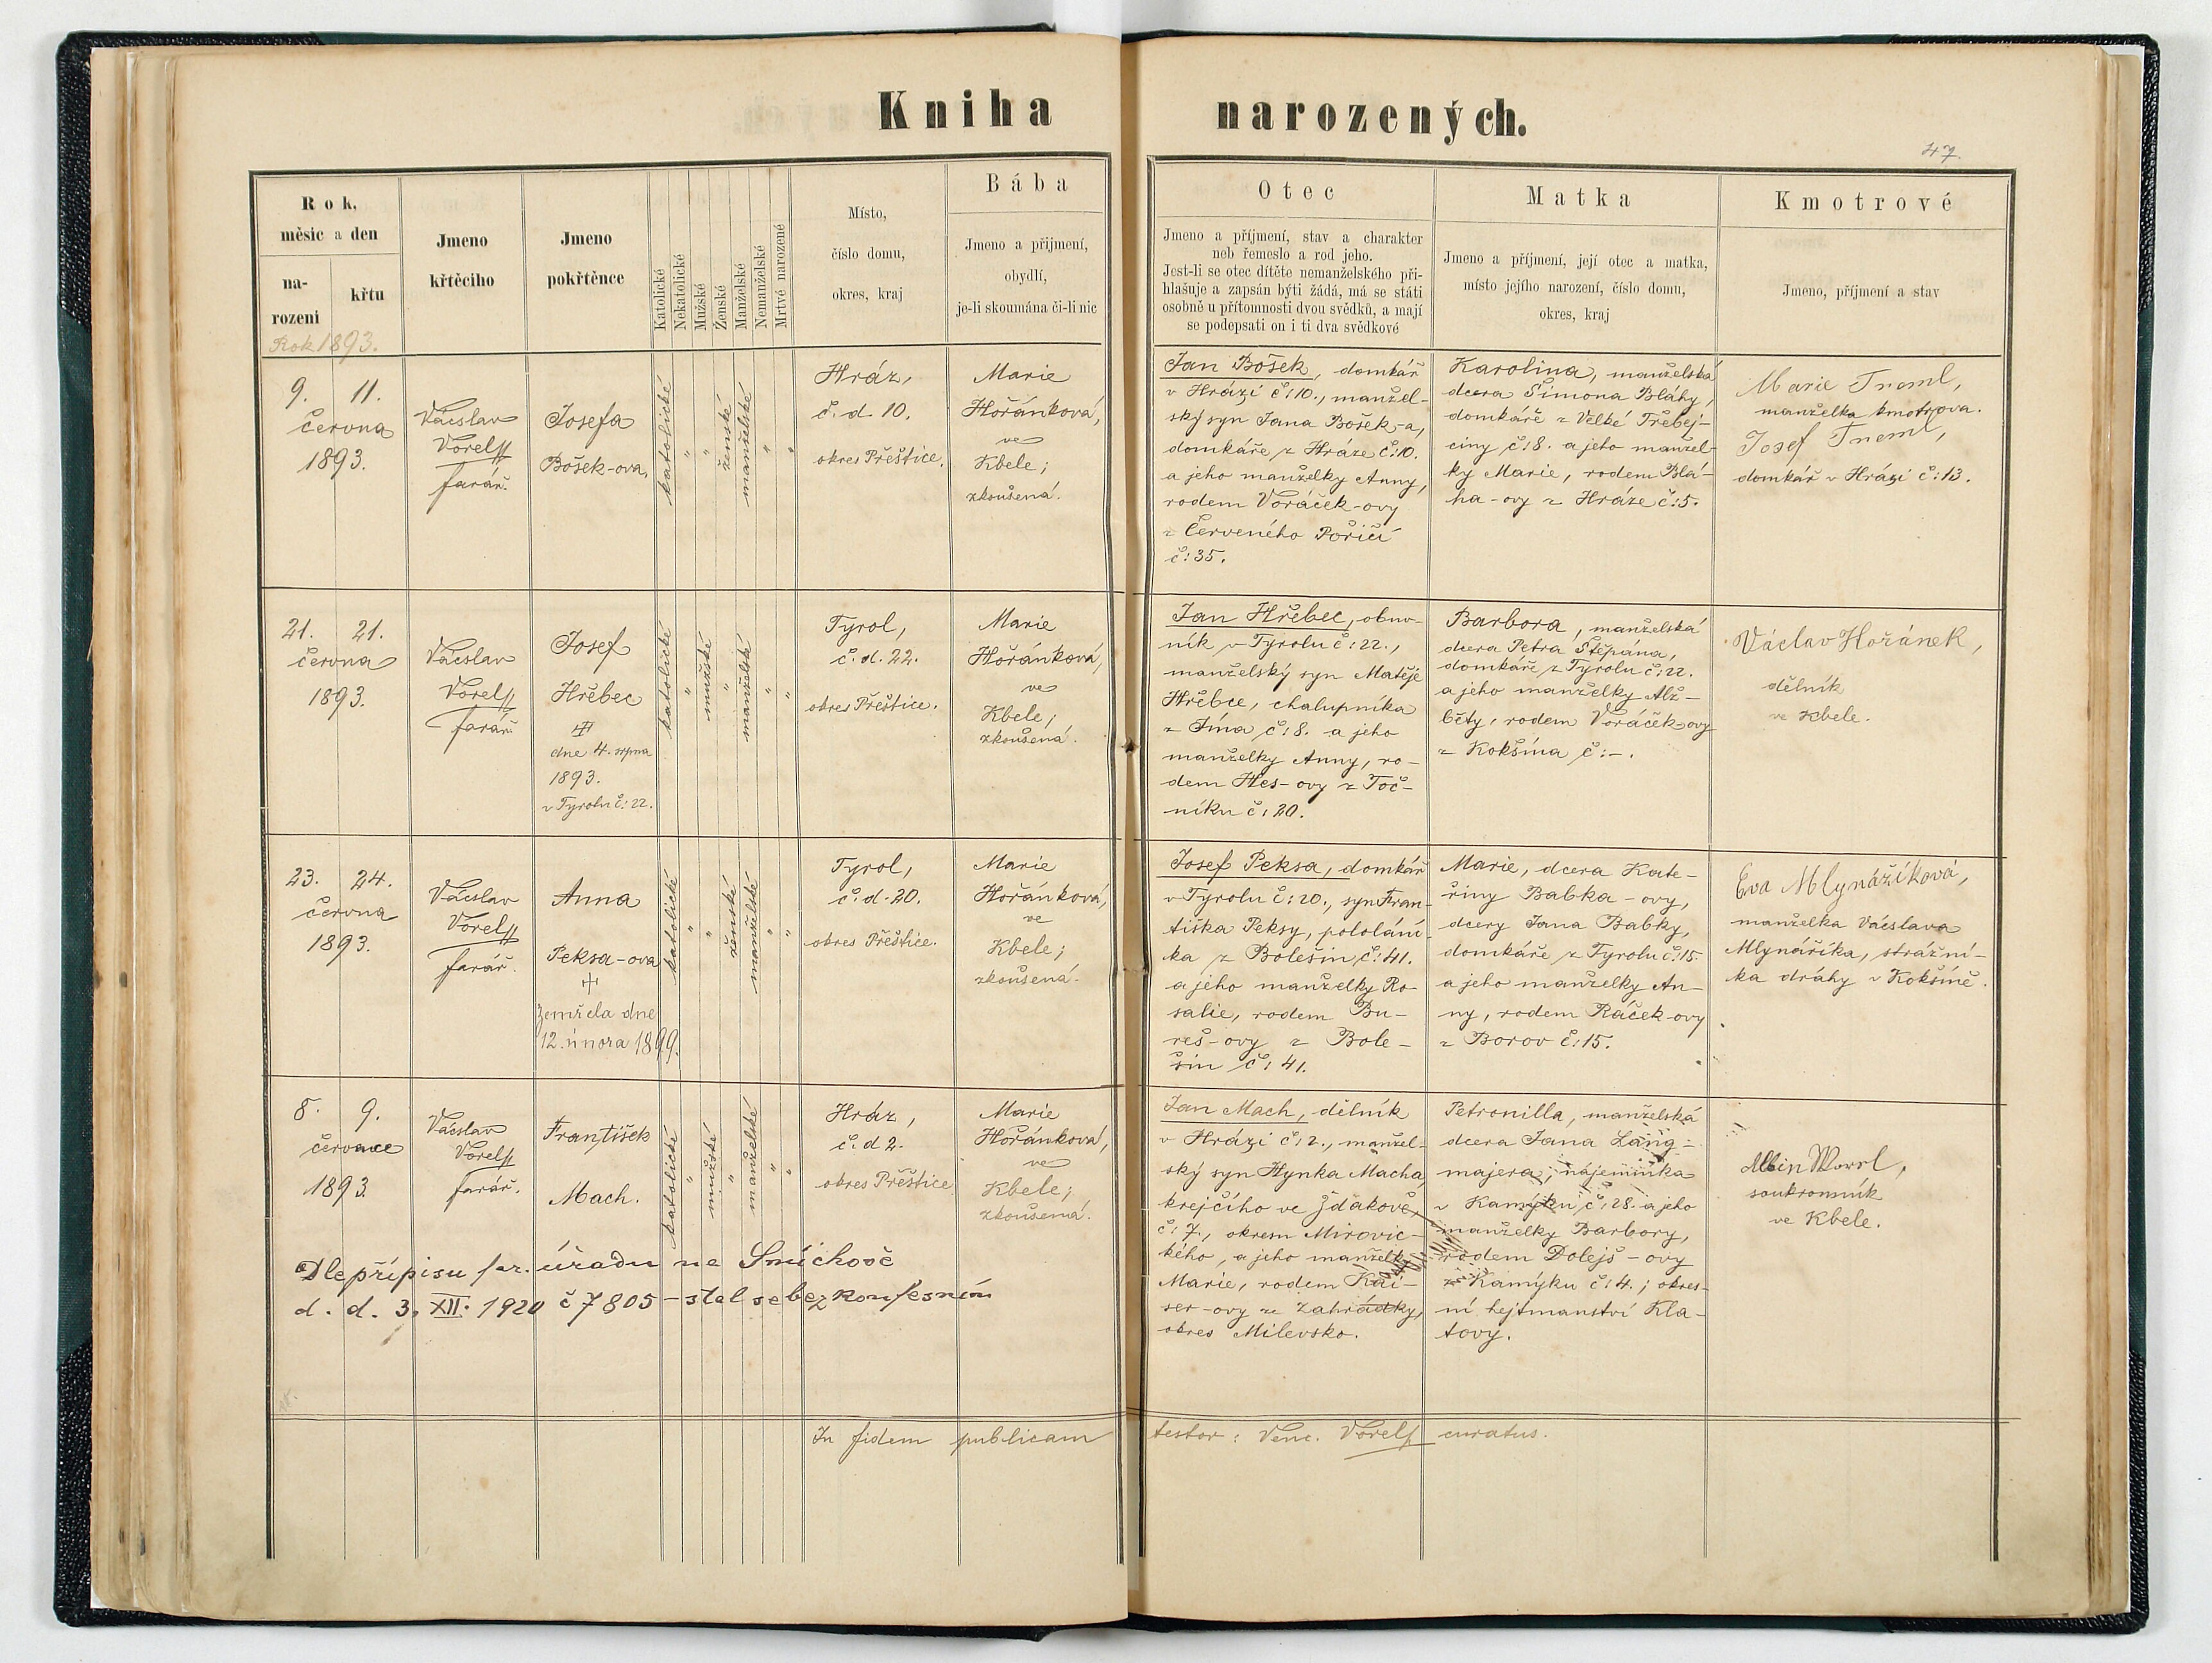 Kniha narozených.
47.
Rok, měsíc a den
na-
rození
křtu
Jmeno
křtěcího
Jmeno
pokřtěnce
Katolické
Nekatolické
Mužské
Ženské
Manželské
Nemanželské
Mrtvě narozené
Místo,
číslo domu,
okres, kraj
Bába
Jmeno a přijmení,
obydlí,
je-li skoumána či-li nic
Otec
Jmeno a příjmení, stav a charakter
neb řemeslo a rod jeho.
Jest-li se otec dítěte nemanželského při-
hlašuje a zapsán býti žádá, má se státi
osobně u přítomnosti dvou svědků, a mají
se podepsati on i ti dva svědkové
Matka
Jmeno a příjmení, její otec a matka,
místo jejího narození, číslo domu,
okres, kraj
Kmotrové
Jmeno, příjmení a stav
Rok 1893.
9. 11.
června
1893.
Václav
Vorel
farář.
Josefa
Bošek-ova
katolické
"
"
ženské
manželské
"
"
Hráz,
č. d. 10.
okres Přeštice.
Marie
Hořánková,
ve
Kbele;
zkoušená.
Jan Bošek, domkář
v Hrázi č: 10., manžel-
ský syn Jana Bošek-a,
domkáře z Hráze č: 10.
a jeho manželky Anny,
rodem Voráček-ovy
z Červeného Poříčí
č: 35.
Karolina, manželská
dcera Šimona Bláhy,
domkáře z Velké Třebej-
činy č: 8. a jeho manžel-
ky Marie, rodem Blá-
ha-ovy z Hráze č: 5.
Marie Treml,
manželka kmotrova.
Josef Treml,
domkář v Hrázi č: 13.
21. 21.
června
1893.
Václav
Vorel
farář.
Josef
Hřebec
dne 4. srpna
1893.
v Tyrolu č: 22.
katolické
"
mužské
"
manželské
"
"
Tyrol,
č. d. 22.
okres Přeštice.
Marie
Hořánková,
ve
Kbele;
zkoušená.
Jan Hřebec, obuv-
ník v Tyrolu č: 22.,
manželský syn Matěje
Hřebce, chalupníka
z Jína č: 8. a jeho
manželky Anny, ro-
dem Hes-ovy z Toč-
níku č: 20.
Barbora, manželská
dcera Petra Štěpána,
domkáře z Tyrolu č: 22.
a jeho manželky Alž-
běty, rodem Voráček-ovy
z Kokšína č: -.
Václav Hořánek,
dělník
ve Kbele.
23. 24.
června
1893.
Václav
Vorel
farář.
Anna
Peksa-ova
+
Zemřela dne
12. února 1899.
katolické
"
"
ženské
manželské
"
"
Tyrol,
č. d. 20.
okres Přeštice.
Marie
Hořánková,
ve
Kbele;
zkoušená.
Josef Peksa, domkář
v Tyrolu č: 20., syn Fran-
tiška Peksy, pololání-
ka z Bolešin č: 41.
a jeho manželky Ro-
salie, rodem Bu-
reš-ovy z Bole-
šin č: 41.
Marie, dcera Kate-
řiny Babka-ovy,
dcery Jana Babky,
domkáře z Tyrolu č: 15.
a jeho manželky An-
ny, rodem Ráček-ovy
z Borov č: 15.
Eva Mlynáříková,
manželka Václava
Mlynáříka, strážní-
ka dráhy v Kokšíně.
8. 9.
července
1893.
Václav
Vorel
farář.
František
Mach.
katolické
"
mužské
"
manželské
"
"
Hráz,
č. d 2.
okres Přeštice
Marie
Hořánková,
ve
Kbele;
zkoušená.
Jan Mach, dělník
v Hrázi č: 2., manžel-
ský syn Hynka Macha,
krejčího ve Zdakově,
č: 7., okresu Mirovic-
kého, a jeho manželky
Marie, rodem Kai-
ser-ovy ze Zahrádky,
okres Milevsko.
Petronilla, manželská
dcera Jana Lang-
majera, nájemníka
v Kamýku č: 28. a jeho
manželky Barbory,
rodem Dolejš-ovy
z Kamýku č: 4.; okres-
ní hejtmanství Kla-
tovy.
Albin Worel,
soukromník
ve Kbele.
Dle přípisu far. úřadu na Smíchově
d. d. 3. XII. 1920 č 7805 – stal se bez konfesním
In fidem publicam testor: Venc. Vorel curatus.